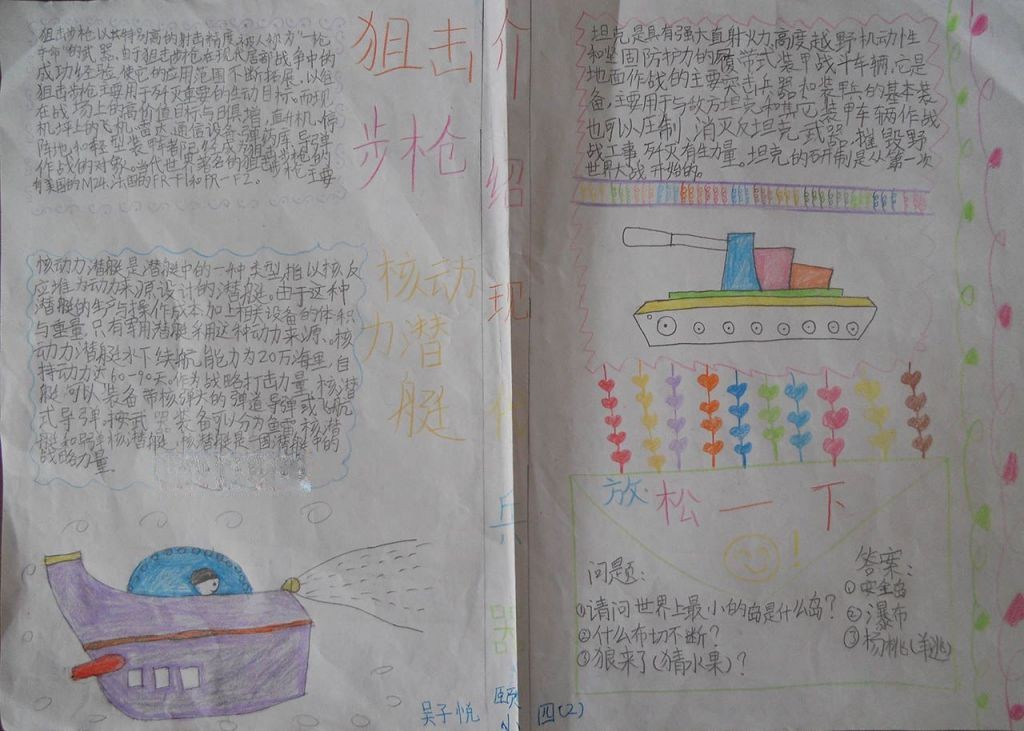 狙击步枪以其特别高的射击精度,被人称为"一枪
夺命"的武器。由于狙击步枪在现代局部战争中的
成功经验,使它的应用范围不断拓展,以往
狙击步枪主要用于歼灭重要的生动目标,而现
在战场上的高价值目标与日俱增,直升机、停
机坪上的飞机、雷达、通信设备、弹药库、导弹
阵地和轻型装甲车都已经成为狙击步枪
作战的对象。当代世界著名的狙击步枪主要
有美国的M24、法国的FR-F1和FR-F2。
狙击
步枪
核动力潜艇是潜艇中的一种类型,指以核反
应堆为动力来源设计的潜艇。由于这种
潜艇的生产与操作成本,加上相关设备的体积
与重量,只有军用潜艇采用这种动力来源。核
动力潜艇水下续航能力为20万海里,自
持动力达60-90天。作为战略打击力量,核潜
艇可以装备带核弹头的弹道导弹或飞航
式导弹,按武器装备可以分为鱼雷核潜
艇和导弹核潜艇,核潜艇是一国潜艇中的
战略力量
核动
力潜
艇
介
绍
现
代
兵
器
坦克是具有强大直射火力、高度越野机动性
和坚固防护力的履带式装甲战斗车辆,它是
地面作战的主要突击兵器和装甲兵的基本装
备,主要用于与敌方坦克和其它装甲车辆作战
也可以压制、消灭反坦克武器,摧毁野
战工事,歼灭有生力量。坦克的研制是从第一次
世界大战开始的。
放松一下
!
问题:
①请问世界上最小的岛是什么岛?
②什么布切不断?
③狼来了(猜水果)?
答案:
①安全岛
②瀑布
③杨桃(羊逃)
吴子悦
颐小
四(2)